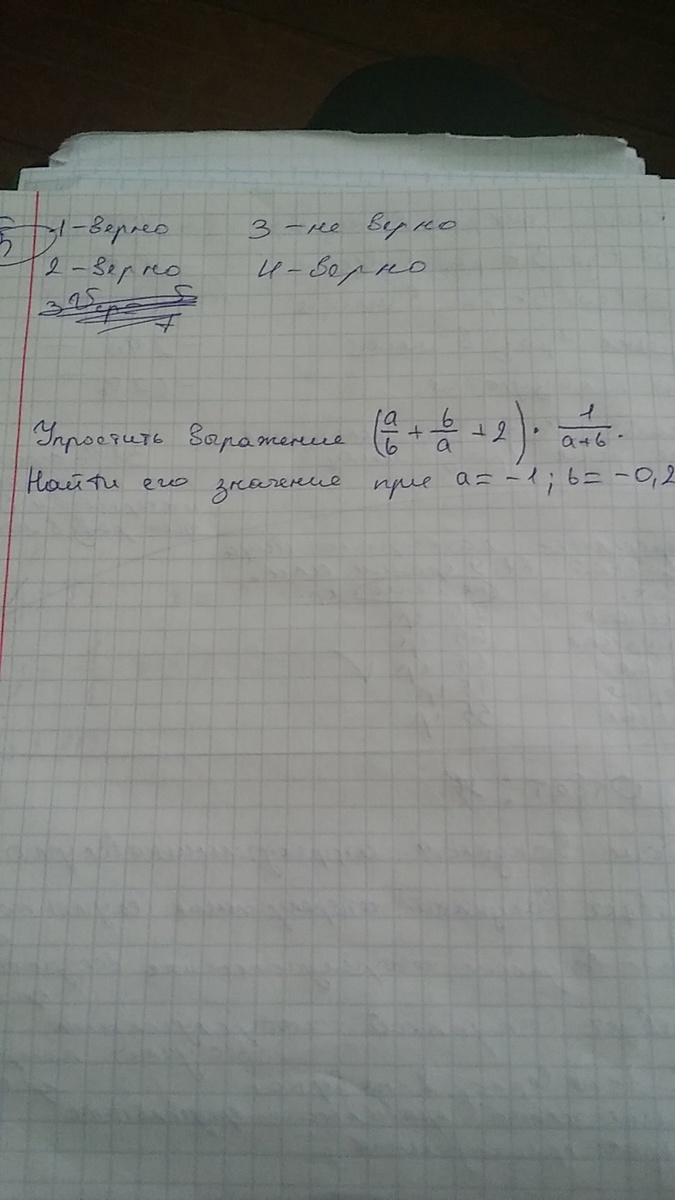 1-верно 3-не верно
2-верно 4-верно
Упростить выражение (a/b + b/a + 2) · 1/(a+b).
Найти его значение при a = -1; b = -0,2